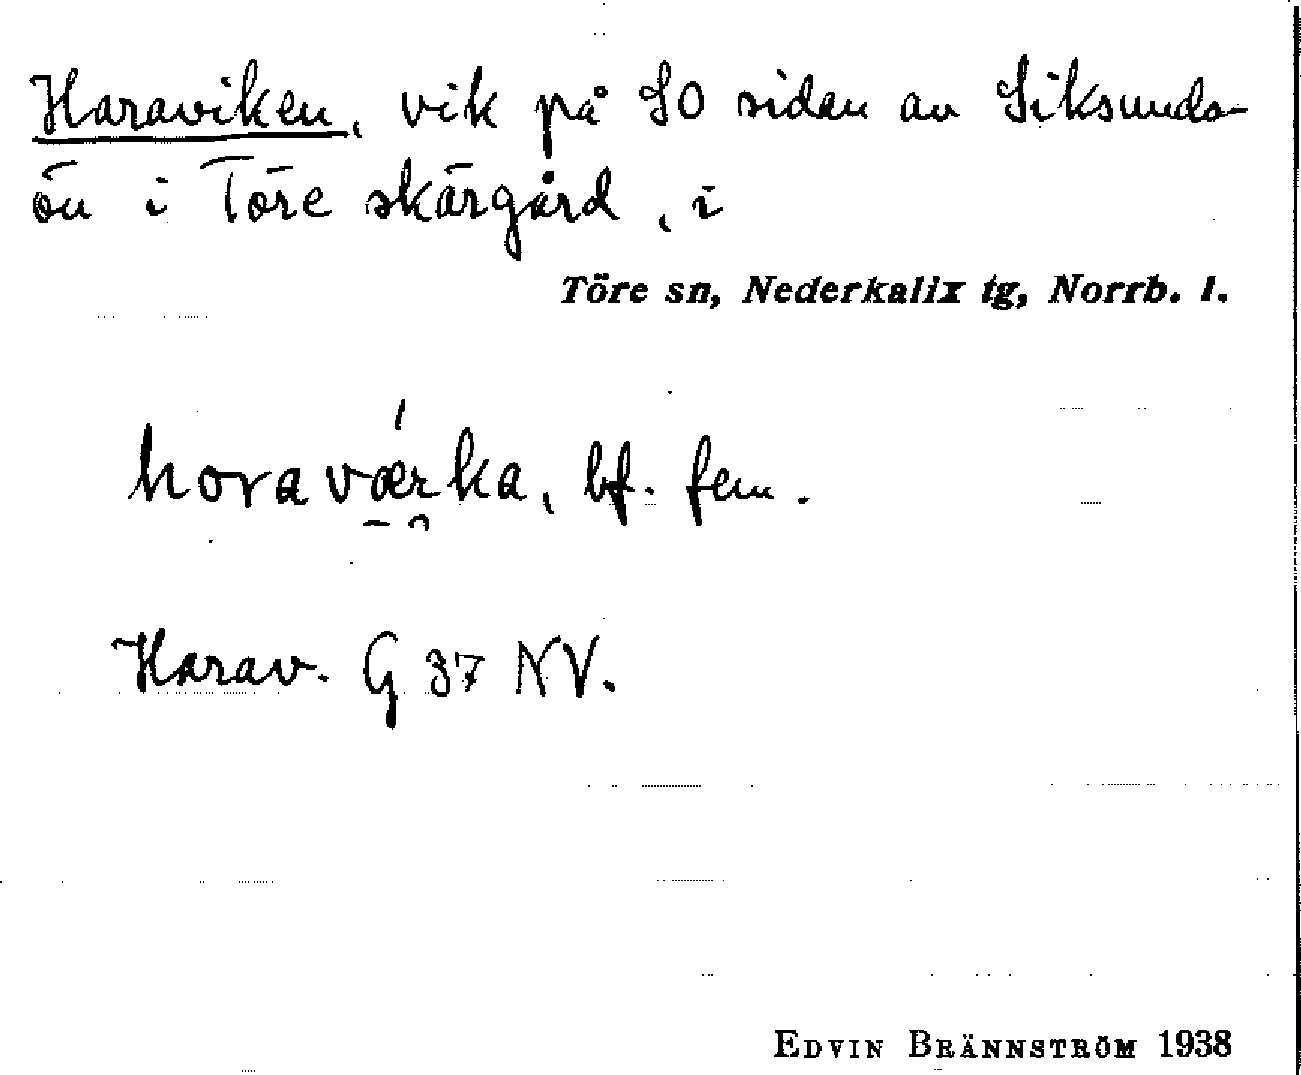 Haraviken, vik på SO sidan av Siksunda-
ön i Töre skärgård, i
Töre sn, Nederkalix tg, Norrb. l.
horaværka, bf. fem.
Harav. G 37 NV.
EDVIN BRÄNNSTRÖM 1938